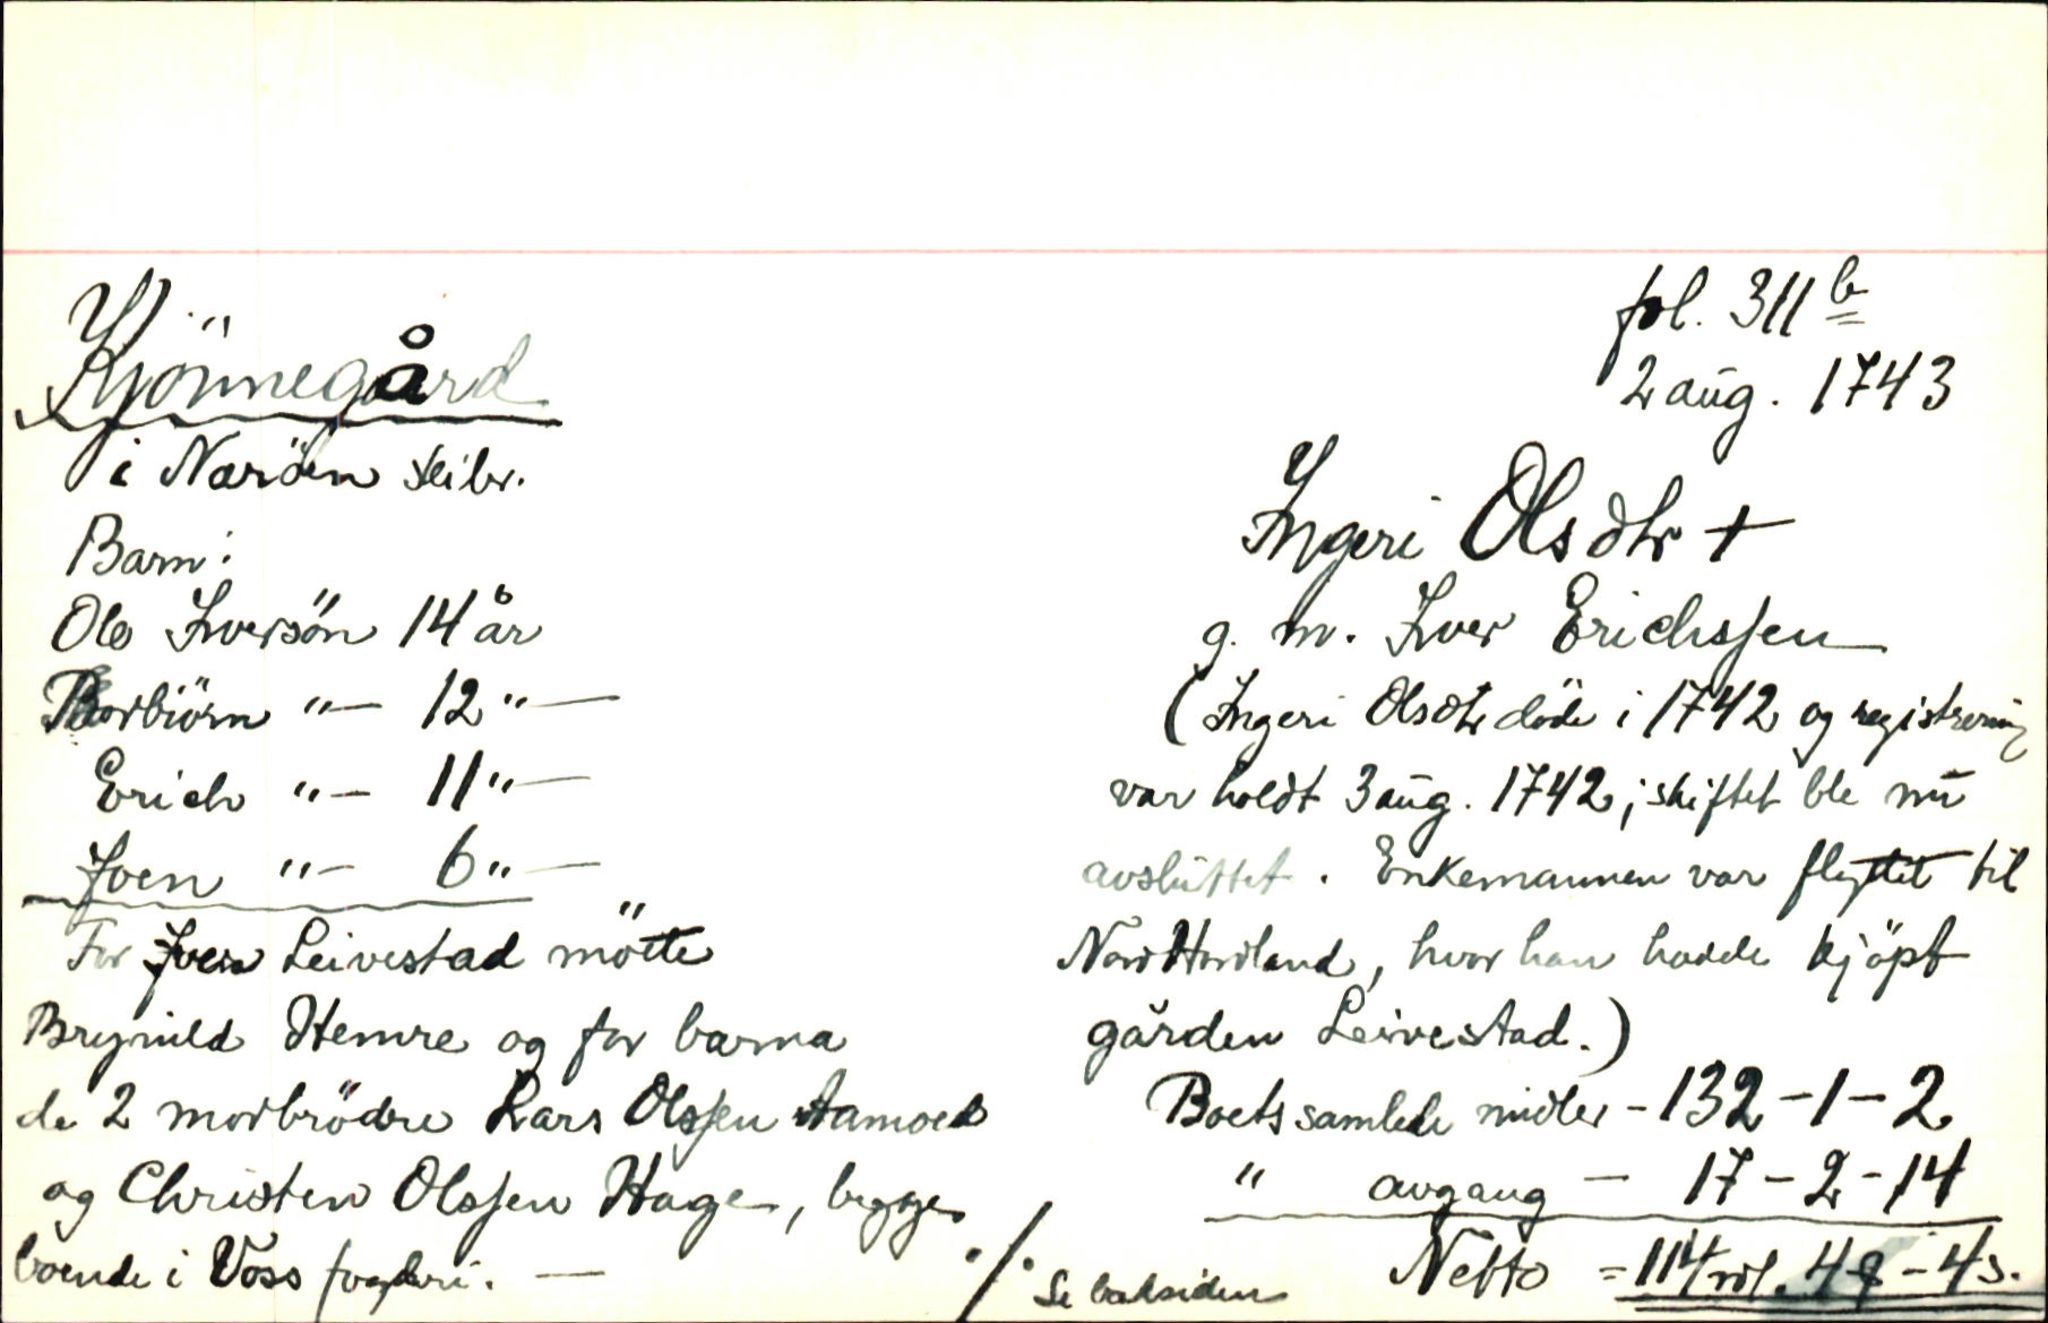 Kjönnegård
i Naröen skibr.
Barn:
Ole Iversön 14 år
Torbiörn "— 12 "—
Erich "— 11 "—
Joen "— 6 "—
For Iver Leivestad mötte
Brynild Hemre og for barna
de 2 morbrödre Lars Olssen
og Christen Olssen Hage, begge
boende i Voss fogderi. —
./. Se baksiden
fol. 311 b
2 aug. 1743
Ingeri Olsdtr +
g. m. Iver Erichssen
(Ingeri Olsdtr döde i 1742 og registrering
var holdt 3 aug. 1742; skiftet ble nu
avsluttet. Enkemannen var flyttet til
NordHordland, hvor han hadde kjöpt
gården Leivestad.)
Boets samlede midler - 132 - 1 - 2
" avgang — 17 - 2 - 14
Netto = 114 rdl. 4 - 4 s.